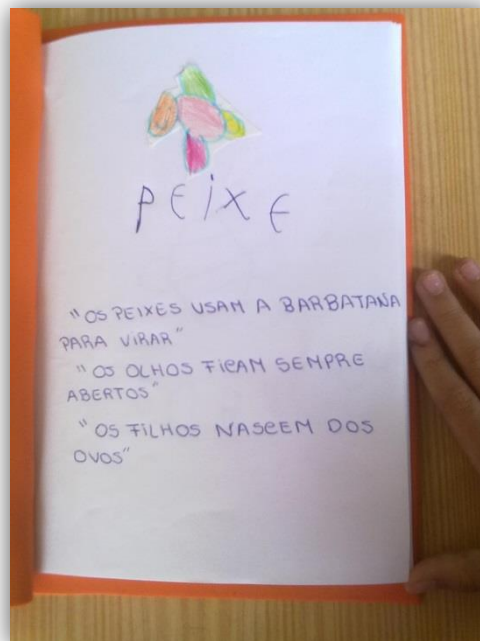 PEIXE
"OS PEIXES USAM A BARBATANA
PARA VIRAR"
"OS OLHOS FICAM SEMPRE
ABERTOS"
"OS FILHOS NASCEM DOS
OVOS"